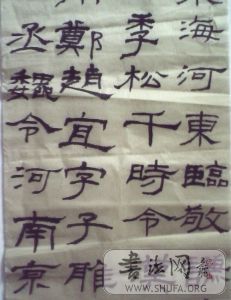 海河東臨敬
季松千時令
鄭趙宜字子雎
丞魏令河南京
書法网
WWW.SHUFA.ORG